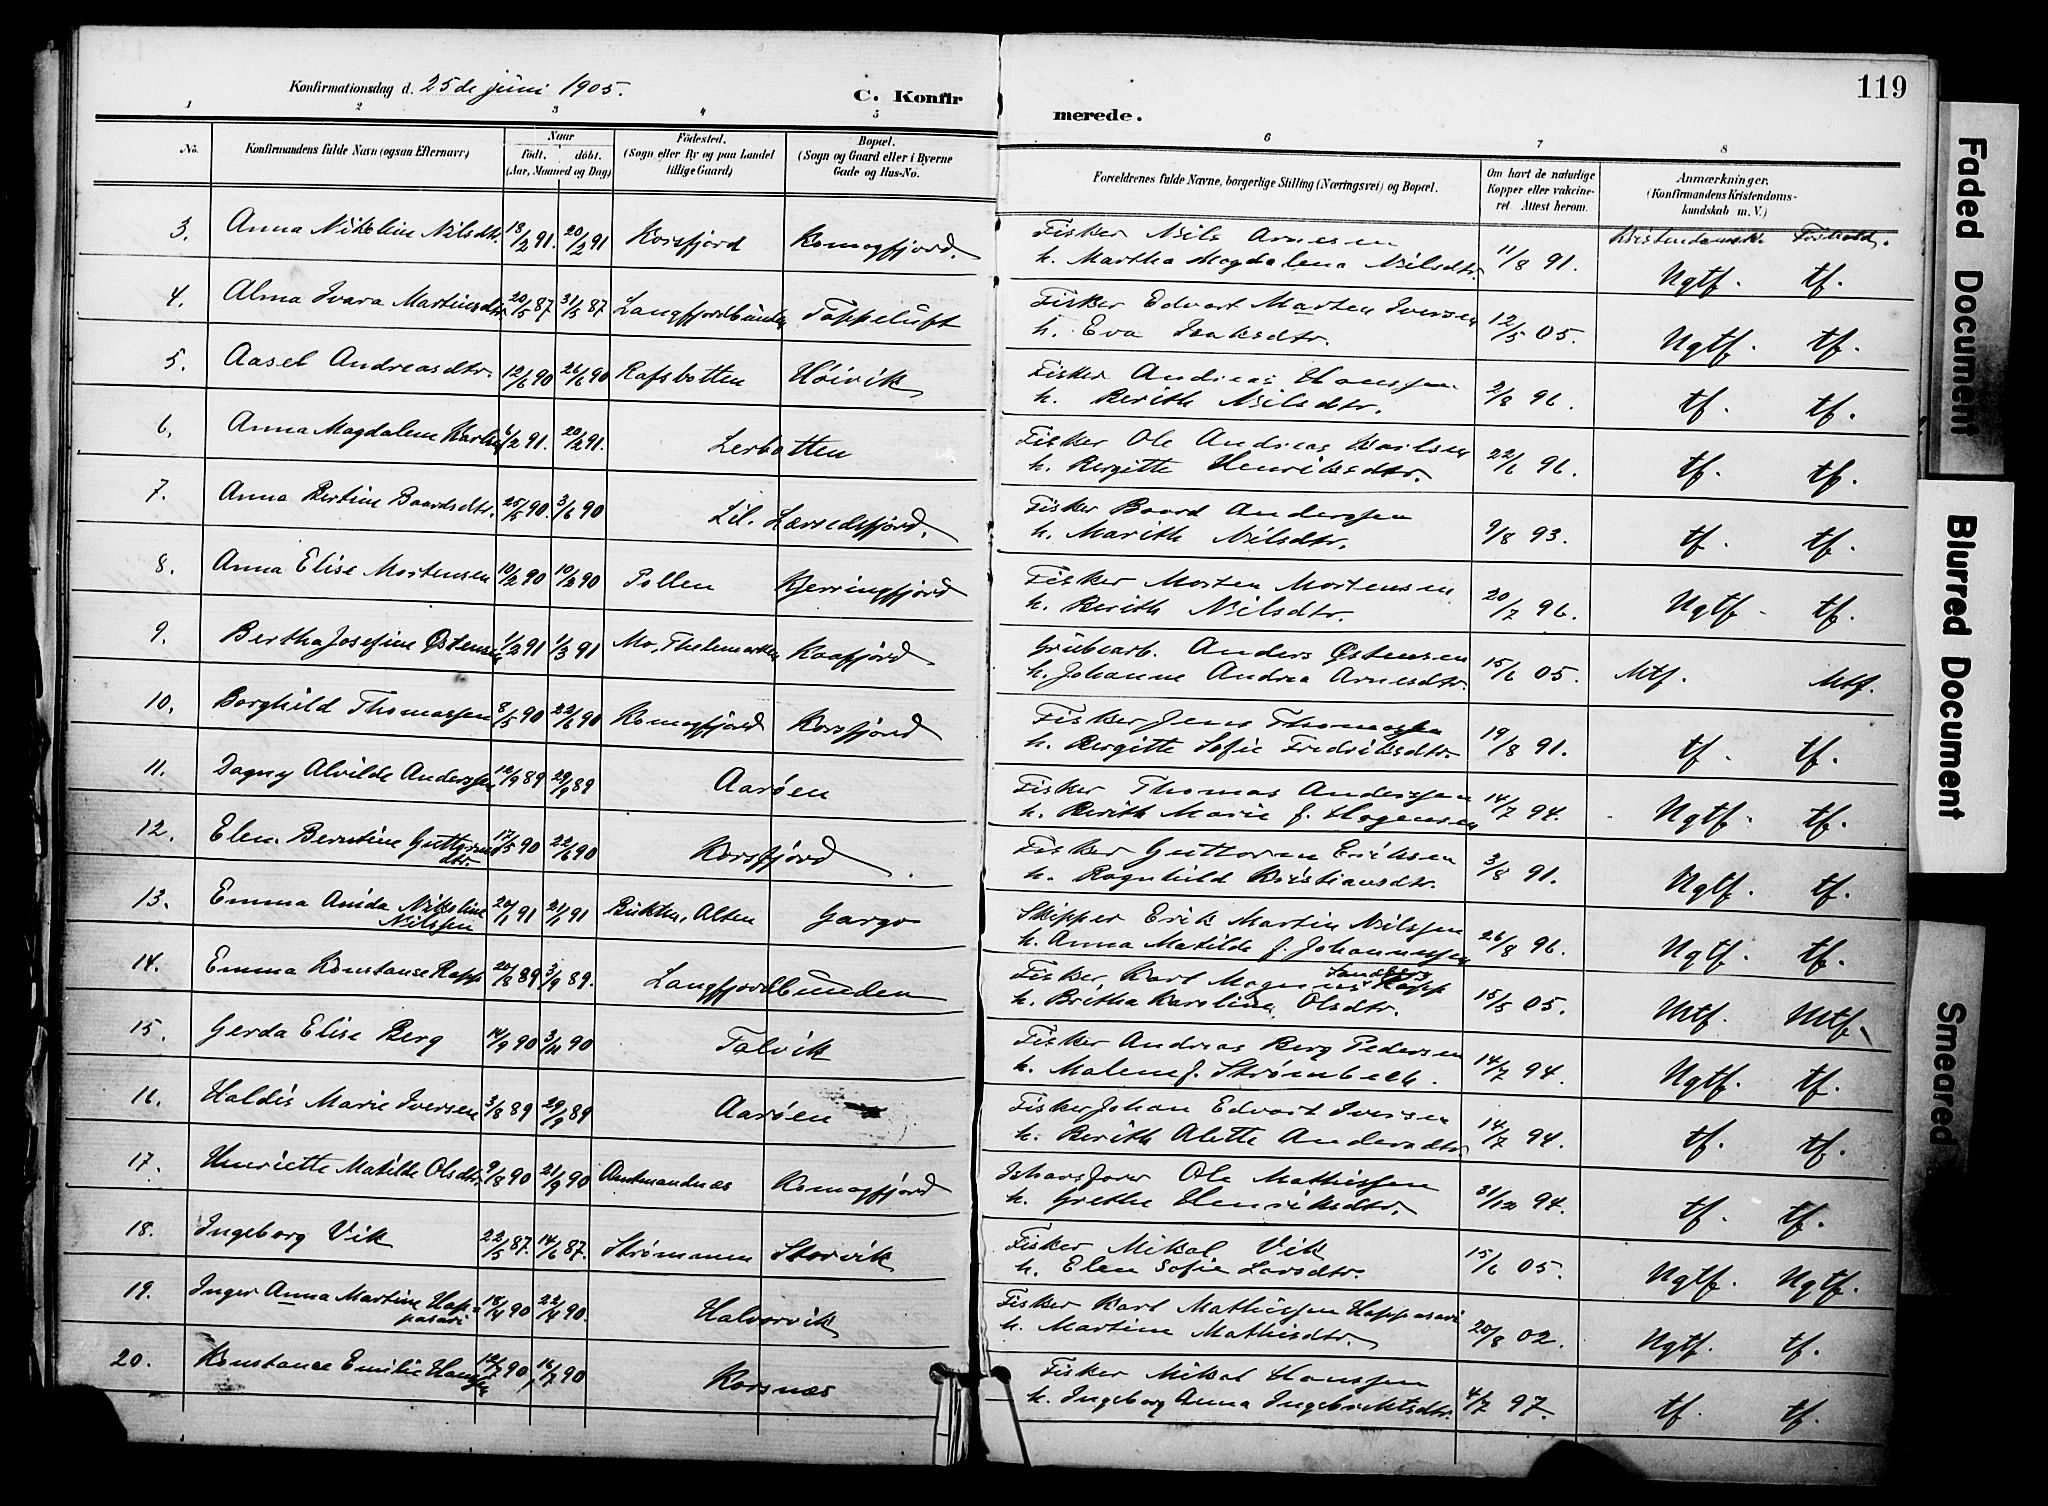 119
Konfirmationsdag d. 25de juni 1905.
C. Konfirmerede.
1 2 3 4 5 6 7 8
No.
Konfirmandens fulde Navn (ogsaa Efternavn)
Naar
födt. döbt.
(Aar, Maaned og Dag)
Födested.
(Sogn eller By og paa Landet
tillige Gaard)
Bopæl.
(Sogn og Gaard eller i Byerne
Gade og Hus-No.
Forældrenes fulde Navne, borgerlige Stilling (Næringsvei) og Bopæl.
Om havt de naturlige
Kopper eller vakcine-
ret Attest herom.
Anmærkninger.
(Konfirmandens Kristendoms-
kundskab m. V.)
Kristendomsk. Forhold.
3. Anna Nikoline Nilsdtr. 13/2 91. 20/2 91 Korsfjord Komagfjord. Fisker Nils Arnesen
h. Martha Magdalena Nilsdtr. 11/8 91. Ngtf. tf.
4. Alma Ivara Martinsdtr 20/5 87 31/5 87 Langfjordbunden Toppeluft Fisker Edvart Marten Iversen
h. Eva Isaksdtr. 12/5 05. Ngtf. tf.
5. Aasel Andreasdtr. 12/6 90 26/6 90 Rafsbotten Høivik Fisker Andreas Hanssen
h. Berith Nilsdtr. 2/8 96. tf. tf.
6. Anna Magdalene Karlsen 6/2 91. 20/2 91. Lerbotten Fisker Ole Andreas Karlsen
h. Bergitte Henriksdtr. 22/6 96. tf. tf.
7. Anna Bertine Baardsdtr. 25/5 90. 3/6 90 Lil. Lerredsfjord. Fisker Baard Anderssen
h. Marith Nilsdtr. 9/8 93. tf. tf.
8. Anna Elise Mortensen 10/2 90 10/2 90 Pollen Kjerringfjord Fisker Morten Mortensen
h. Berith Nilsdtr. 20/7 96. Ngtf. tf.
9. Bertha Josefine Østensen 1/2 91 1/3 91 Mo, Thelemarken Kaafjord Grubearb. Anders Østensen
h. Johanne Andrea Arnesdtr. 15/6 05. Mtf. Mtf.
10. Borghild Thomassen 8/5 90 22/6 90 Komagfjord Korsfjord Fisker Jens Thomassen
h. Bergitte Sofie Fredriksdtr. 19/8 91. tf. tf.
11. Dagny Alvilde Anderssen 10/9 89 29/9 89 Aarøen Fisker Thomas Anderssen
h. Berith Marie f. Hagensen 14/7 94. Ngtf. tf.
12. Elen Berntine Guttorms
dtr. 17/5 90 22/6 90 Korsfjord. Fisker Guttorm Eriksen
h. Ragnhild Kristiansdtr. 3/8 91. Ngtf. tf.
13. Emma Anida Nikoline
Nilssen 20/1 91 21/1 91 Bukten, Alten Gargo Skipper Erik Martin Nilssen
h. Anna Matilde f. Johannessen 26/8 96. Ngtf. tf.
14. Emma Konstanse Rapp 20/8 89 3/9 89. Langfjordbunden Fisker Karl Magnus Rapp
h. Britha Karolina Olsdtr. 15/5 05. Mtf. Mtf.
15. Gerda Elise Berg 14/9 90 3/11 90 Talvik Fisker Andreas Berg Pedersen
h. Malene f. Strømbeck. 14/7 94. Ngtf. tf.
16. Haldis Marie Iversen 3/8 89 29/9 89 Aarøen Fisker Johan Edvart Iversen
h. Berith Alette Andersdtr 14/7 94. tf. tf.
17. Henriette Matilde Olsdtr. 9/8 90 21/9 90 Amtmandnæs Komagfjord Ole Mathissen
h. Grethe Henriksdtr. 31/12 94. tf. tf.
18. Ingeborg Vik 22/5 87. 14/6 87. Strømmen Storvik Fisker Mikal Vik
h. Elen Sofie Larsdtr. 15/6 05. Ngtf. Ngtf.
19. Inger Anna Martine Hap-
pasari 18/4 90 22/4 90. Halvorvik Fisker Karl Mathissen Happasari
h. Martine Mathisdtr. 20/8 02. Ngtf. tf.
20. Konstanse Emilie Hanssen 10/7 90 16/7 90 Korsnæs Fisker Mikal Hanssen
h. Ingeborg Anna Ingebriktsdtr. 4/7 97. tf. tf.
Faded Document
Blurred Document
Smeared